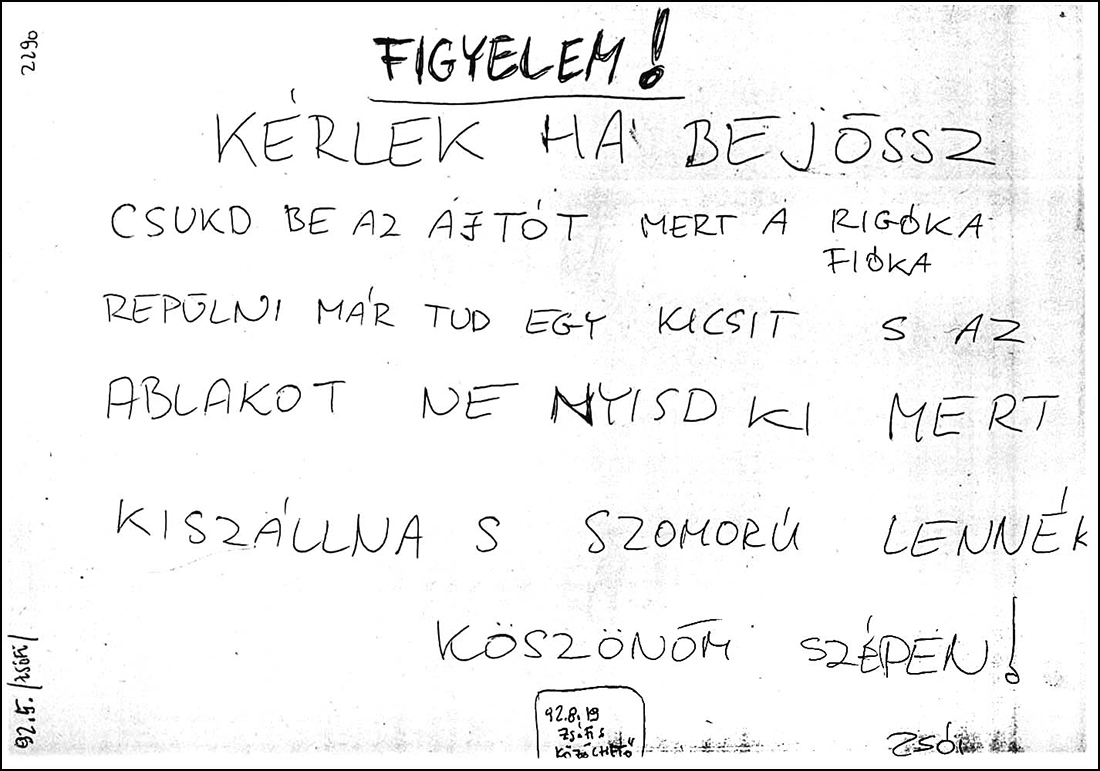 2290
FIGYELEM!
KÉRLEK HA BEJŐSSZ
CSUKD BE AZ ÁJTÓT MERT A RIGÓKA
FIÓKA
REPŪLNI MÁR TUD EGY KICSIT S AZ
ABLAKOT NE NYISD KI MERT
KISZÁLLNA S SZOMORÚ LENNÉK
KÖSZÖNÖM SZÉPEN!
ZSÓ
92.5. /ZSÓFI/
92.8.19